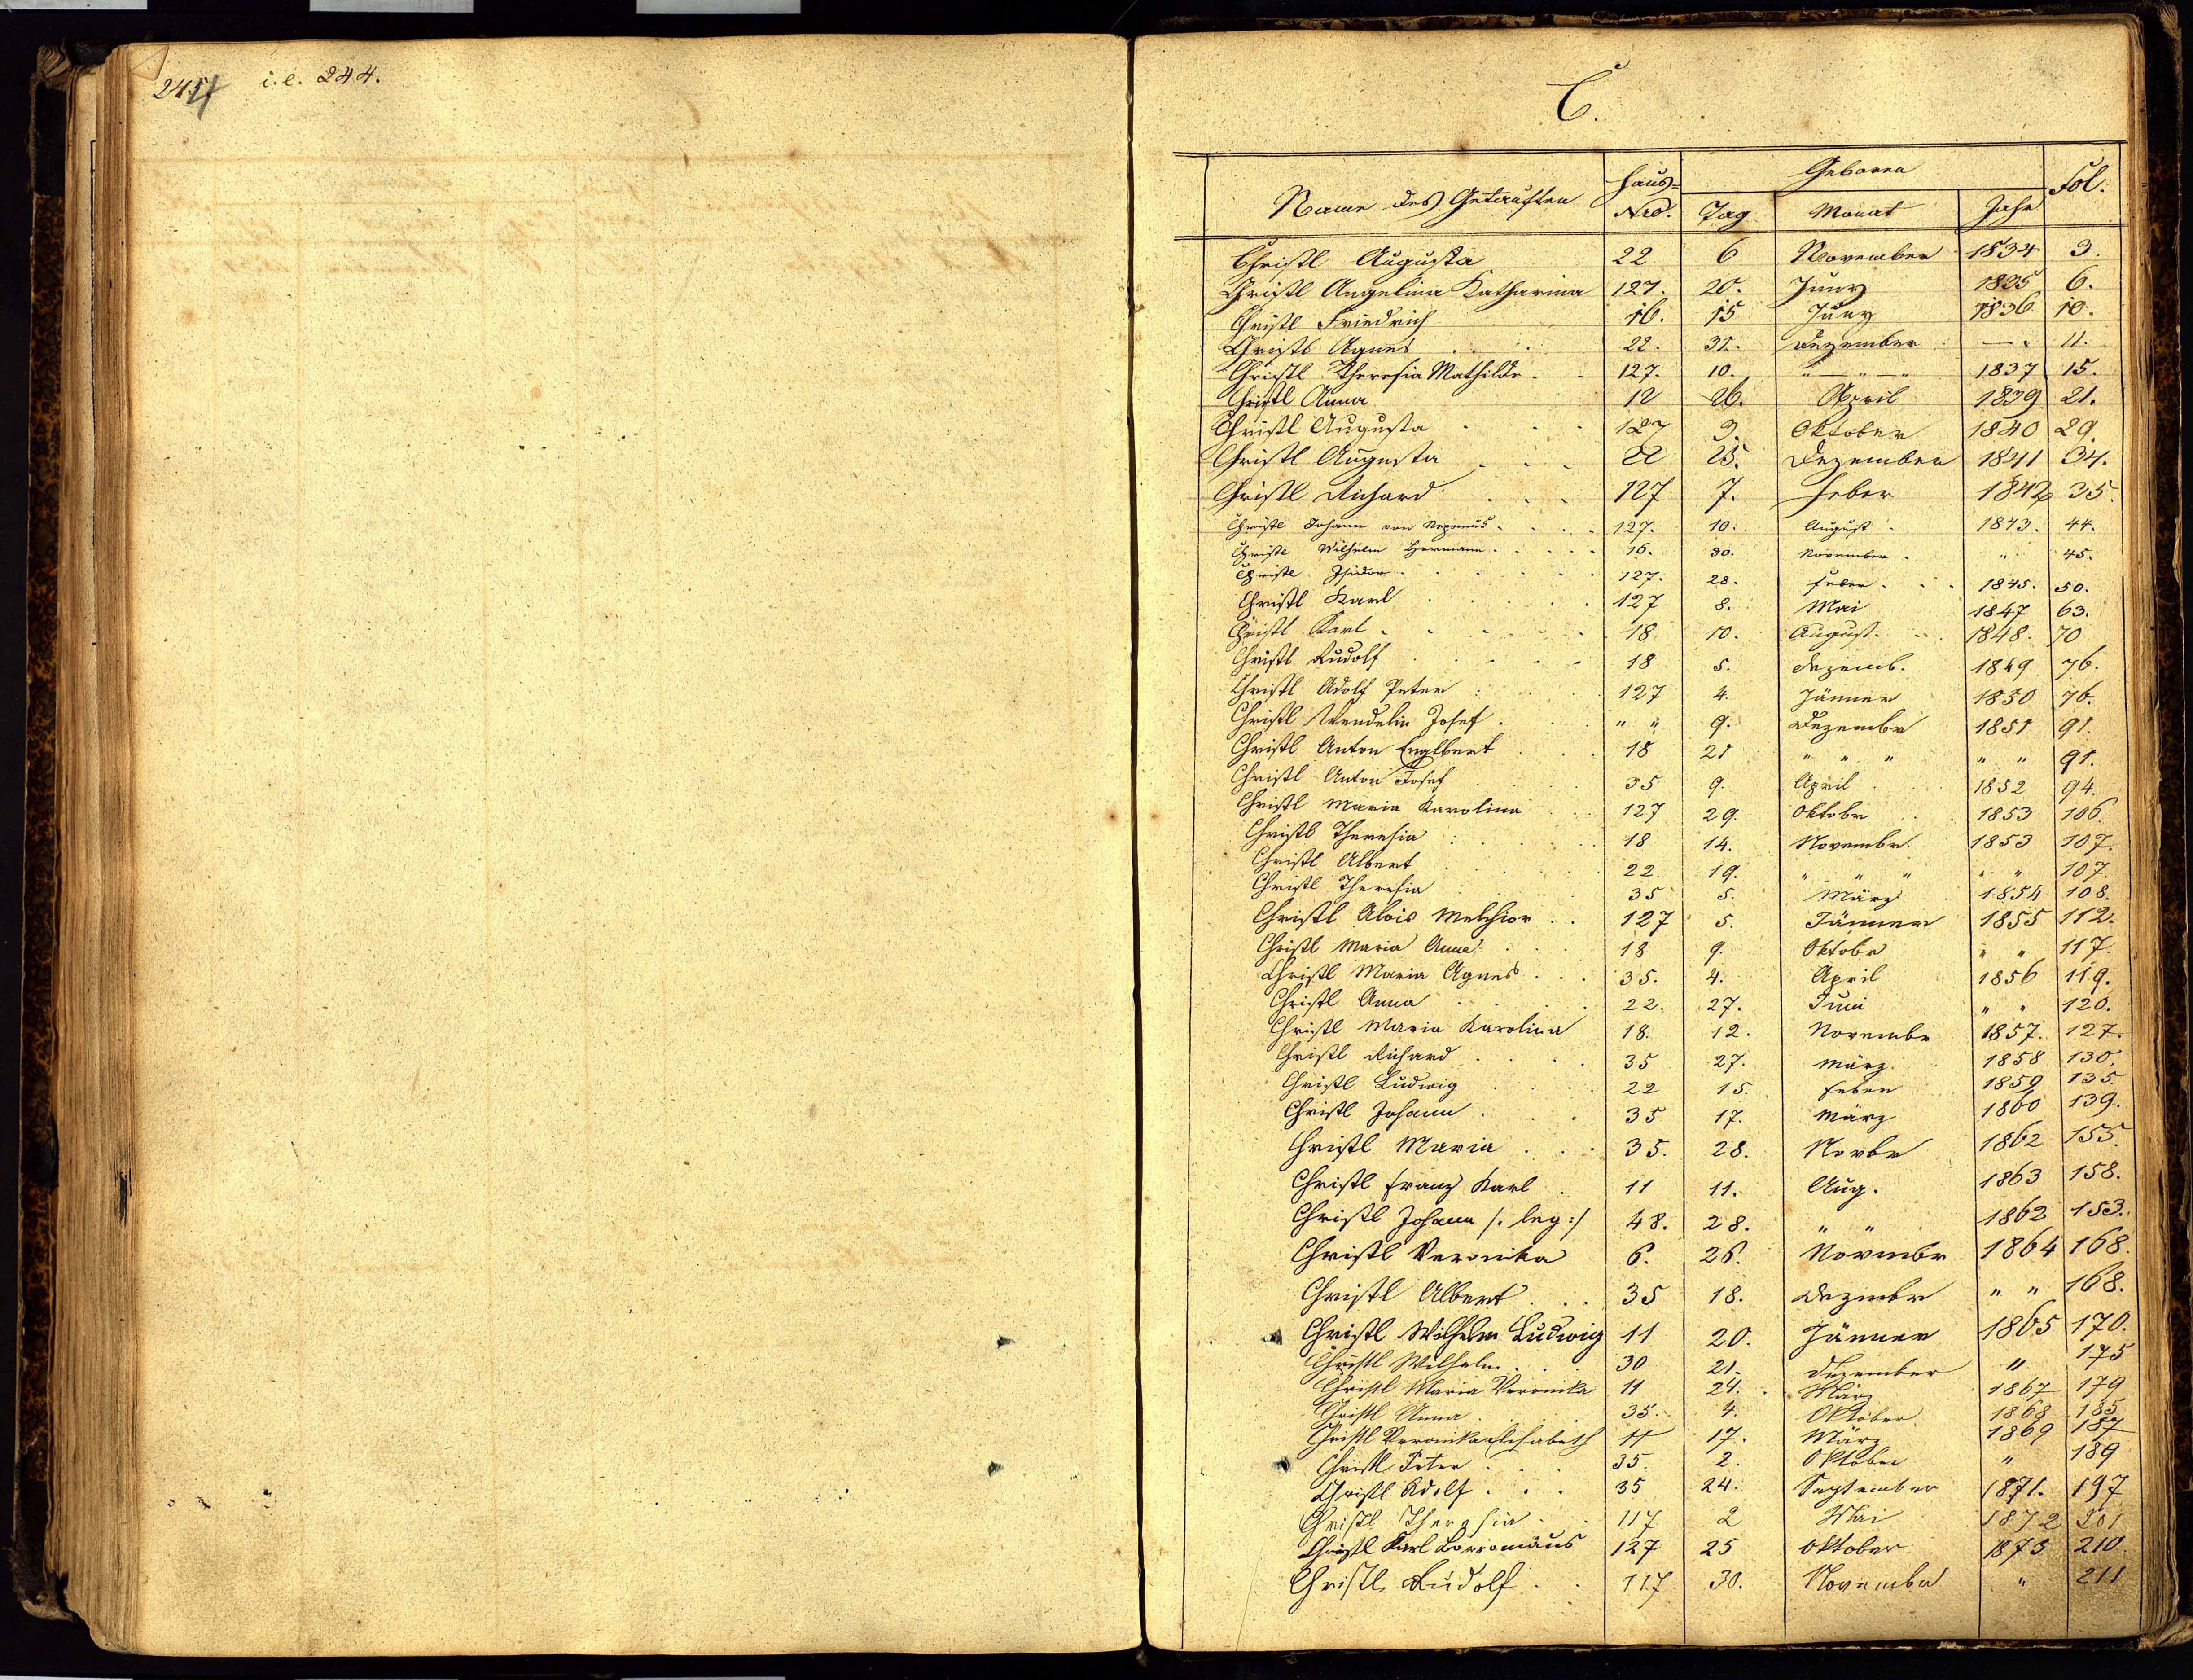 245 i.e. 244.
C.
Name des Getauften Haus- Nro. Geboren Tag Monat Jahr Fol.
Christl Augusta 22 6 November 1834 3.
Christl Angelina Katharina 127. 20. Juny 1835 6.
Christl Friedrich 16. 15 Juny 1836 10.
Christl Agnes 22. 31. Dezember — " 11.
Christl Theresia Mathilde 127. 10. " — " — " 1837 15.
Christl Anna 12 26. April 1839 21.
Christl Augusta 127 3. Oktober 1840 29.
Christl Augusta 22 25. Dezember 1841 34.
Christl Richard 127 7. Feber 1842 35.
Christl Johann von Nepomuk 127. 10. August 1843. 44.
Christl Wilhelm Hermann 16. 30. November " 45.
Christl Isidor 127. 28. Feber 1845. 50.
Christl Karl 127 8. Mai 1847 63.
Christl Karl 18 10. August 1848. 70
Christl Rudolf 18 5. Dezemb. 1849 76.
Christl Adolf Peter 127 4. Jänner 1850 76.
Christl Wendelin Josef " " 9. Dezembr 1851 91.
Christl Anton Englbert 18 21 " " " " " 91.
Christl Anton Josef 35 9. April 1852 94.
Christl Maria Karolina 127 29. Oktobr 1853 106.
Christl Theresia 18 14. Novembr. 1853 107.
Christl Albert 22. 19. " " " " " 107.
Christl Theresia 35 5. März 1854 108.
Christl Alois Melchior 127 5. Jänner 1855 112.
Christl Maria Anna 18 9. Oktobr " " 117.
Christl Maria Agnes 35. 4. April 1856 119.
Christl Anna 22. 27. Juni " " 120.
Christl Maria Karolina 18. 12. Novembr 1857. 127.
Christl Richard 35 27. März 1858 130.
Christl Ludwig 22 15. Feber 1859 135.
Christl Johann 35 17. März 1860 139.
Christl Maria 35. 28. Novbr 1862 155.
Christl Franz Karl 11 11. Aug. 1863 158.
Christl Johann /: leg :/ 48. 28. " " 1862 153.
Christl Veronika 6. 26. Novembr 1864 168.
Christl Albert 35 18. Dezembr " " 168.
Christl Wilhelm Ludwig 11 20. Jänner 1865 170.
Christl Wilhelm 30 21. Dezember " 175
Christl Maria Veronika 11 24. März 1867 179
Christl Anna 35. 4. Oktober 1868 185
Christl Veronika Elisabeth 11 17. März 1869 187
Christl Peter 35. 2. Oktober " 189
Christl Adolf 35 24. September 1871. 197
Christl Theresia 117 2 Mai 1872 201
Christl Karl Borromäus 127 25 Oktober 1873 210
Christl Rudolf 117 30. November " 211